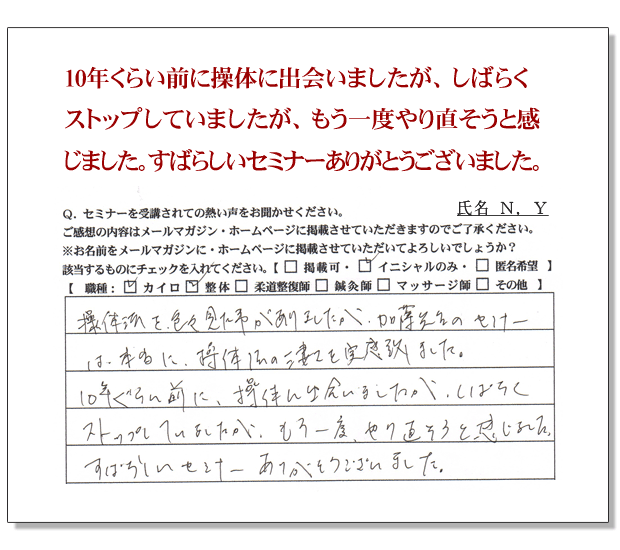 10年くらい前に操体に出会いましたが、しばらく
ストップしていましたが、もう一度やり直そうと感
じました。すばらしいセミナーありがとうございました。
Q. セミナーを受講されての熱い声をお聞かせください。
氏名 N, Y
ご感想の内容はメールマガジン・ホームページに掲載させていただきますのでご了承ください。
※お名前をメールマガジンに・ホームページに掲載させていただいてよろしいでしょうか？
該当するものにチェックを入れてください。【 □ 掲載可・ ☑ イニシャルのみ・ □ 匿名希望 】
【 職種： ☑ カイロ ☑ 整体 □ 柔道整復師 □ 鍼灸師 □ マッサージ師 □ その他 】
操体法を、色々見た事がありましたが、加藤先生のセミナー
は、本当に、操体法の凄さを実感致しました。
10年ぐらい前に、操体に出会いましたが、しばらく
ストップしていましたが、もう一度、やり直そうと感じました。
すばらしいセミナーありがとうございました。